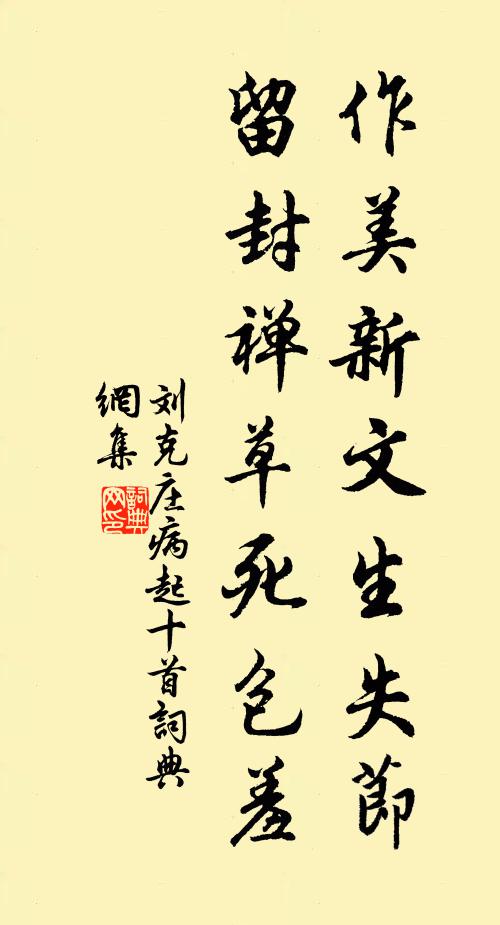 作美新文生失節
留封禅草死包羞
刘克庄病起十首詞典
網集
詞典
网印